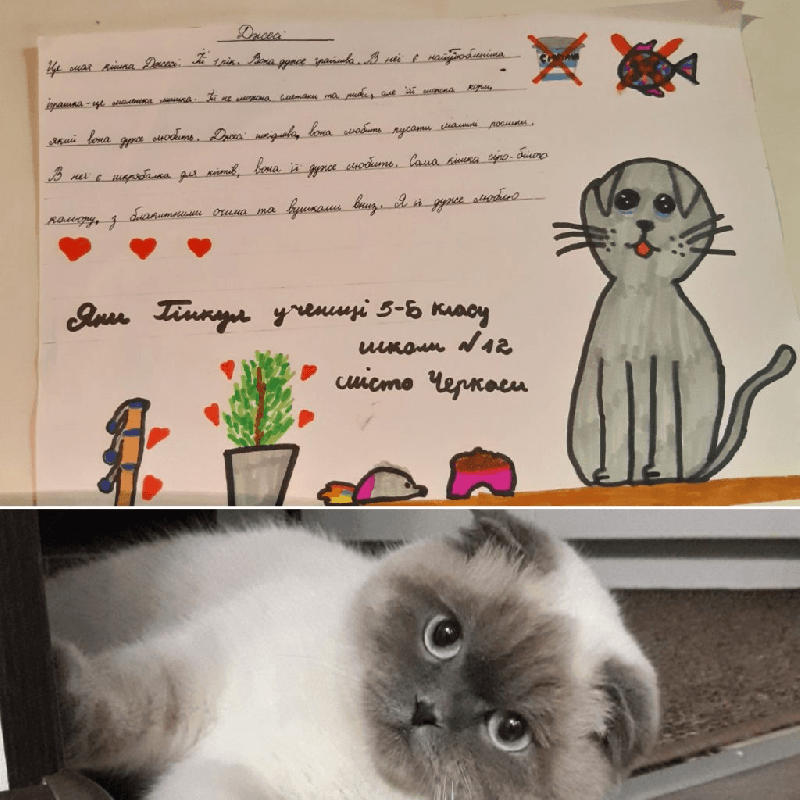 Джесі
Сметана
Це моя кішка Джесі. Їй 1 рік. Вона дуже грайлива. В неї є найулюбленіша
іграшка-це маленька мишка. Їй не можна сметани та риби, але їй можна корм,
який вона дуже любить. Джесі шкідлива, вона любить кусати мамині рослини.
В неї є шкрябалка для котів, вона її дуже любить. Сама кішка сіро-білого
кольору, з блакитними очима та вушками вниз. Я її дуже люблю
Яни Гінкул учениці 5-Б класу
школи №12
місто Черкаси